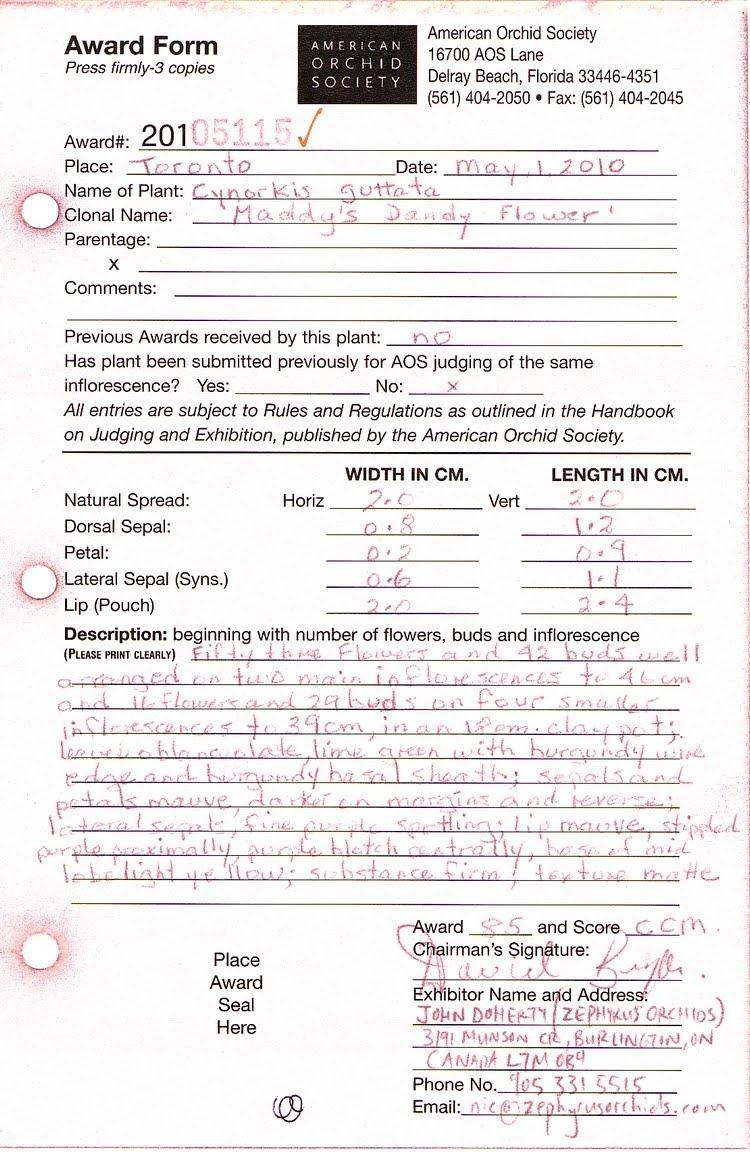 Award Form
Press firmly-3 copies
AMERICAN
ORCHID
SOCIETY
American Orchid Society
16700 AOS Lane
Delray Beach, Florida 33446-4351
(561) 404-2050 • Fax: (561) 404-2045
Award#: 20105115 ✓
Place: Toronto Date: May, 1, 2010
Name of Plant: Cynorkis guttata
Clonal Name: 'Maddy's Dandy Flower'
Parentage:
x
Comments:
Previous Awards received by this plant: no
Has plant been submitted previously for AOS judging of the same
inflorescence? Yes: No: x
All entries are subject to Rules and Regulations as outlined in the Handbook
on Judging and Exhibition, published by the American Orchid Society.
WIDTH IN CM. LENGTH IN CM.
Natural Spread: Horiz 2.0 Vert 2.0
Dorsal Sepal: 0.8 1.2
Petal: 0.2 0.9
Lateral Sepal (Syns.) 0.6 1.1
Lip (Pouch) 2.0 2.4
Description: beginning with number of flowers, buds and inflorescence
(PLEASE PRINT CLEARLY) Fifty three flowers and 42 buds well
arranged on two main inflorescences to 46 cm
and 11 flowers and 29 buds on four smaller
inflorescences to 39cm, in an 18cm. clay pot;
leaves oblanceolate, lime green with burgundy wire
edge and burgundy basal sheath; sepals and
petals mauve, darker on margins and reverse;
lateral sepals, fine purple spotting; lip mauve, stippled
purple proximally, purple blotch centrally, base of mid
lobe light yellow; substance firm; texture matte
Award 85 and Score CCM.
Chairman's Signature:
Place
Award
Seal
Here
Exhibitor Name and Address:
JOHN DOHERTY (ZEPHYRUS ORCHIDS)
3191 MUNSON CR, BURLINGTON, ON
CANADA L7M 0B4
Phone No. 905 331 5515
Email: nic@zephyrusorchids.com